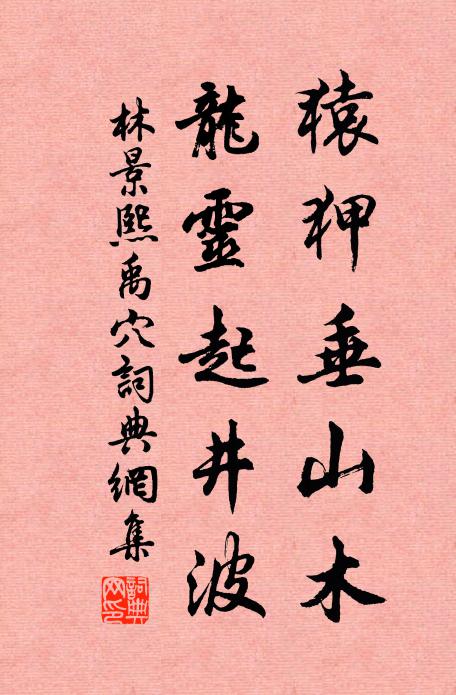 猿狎垂山木
龍靈起井波
林景熙禹穴詞典網集
詞典網印